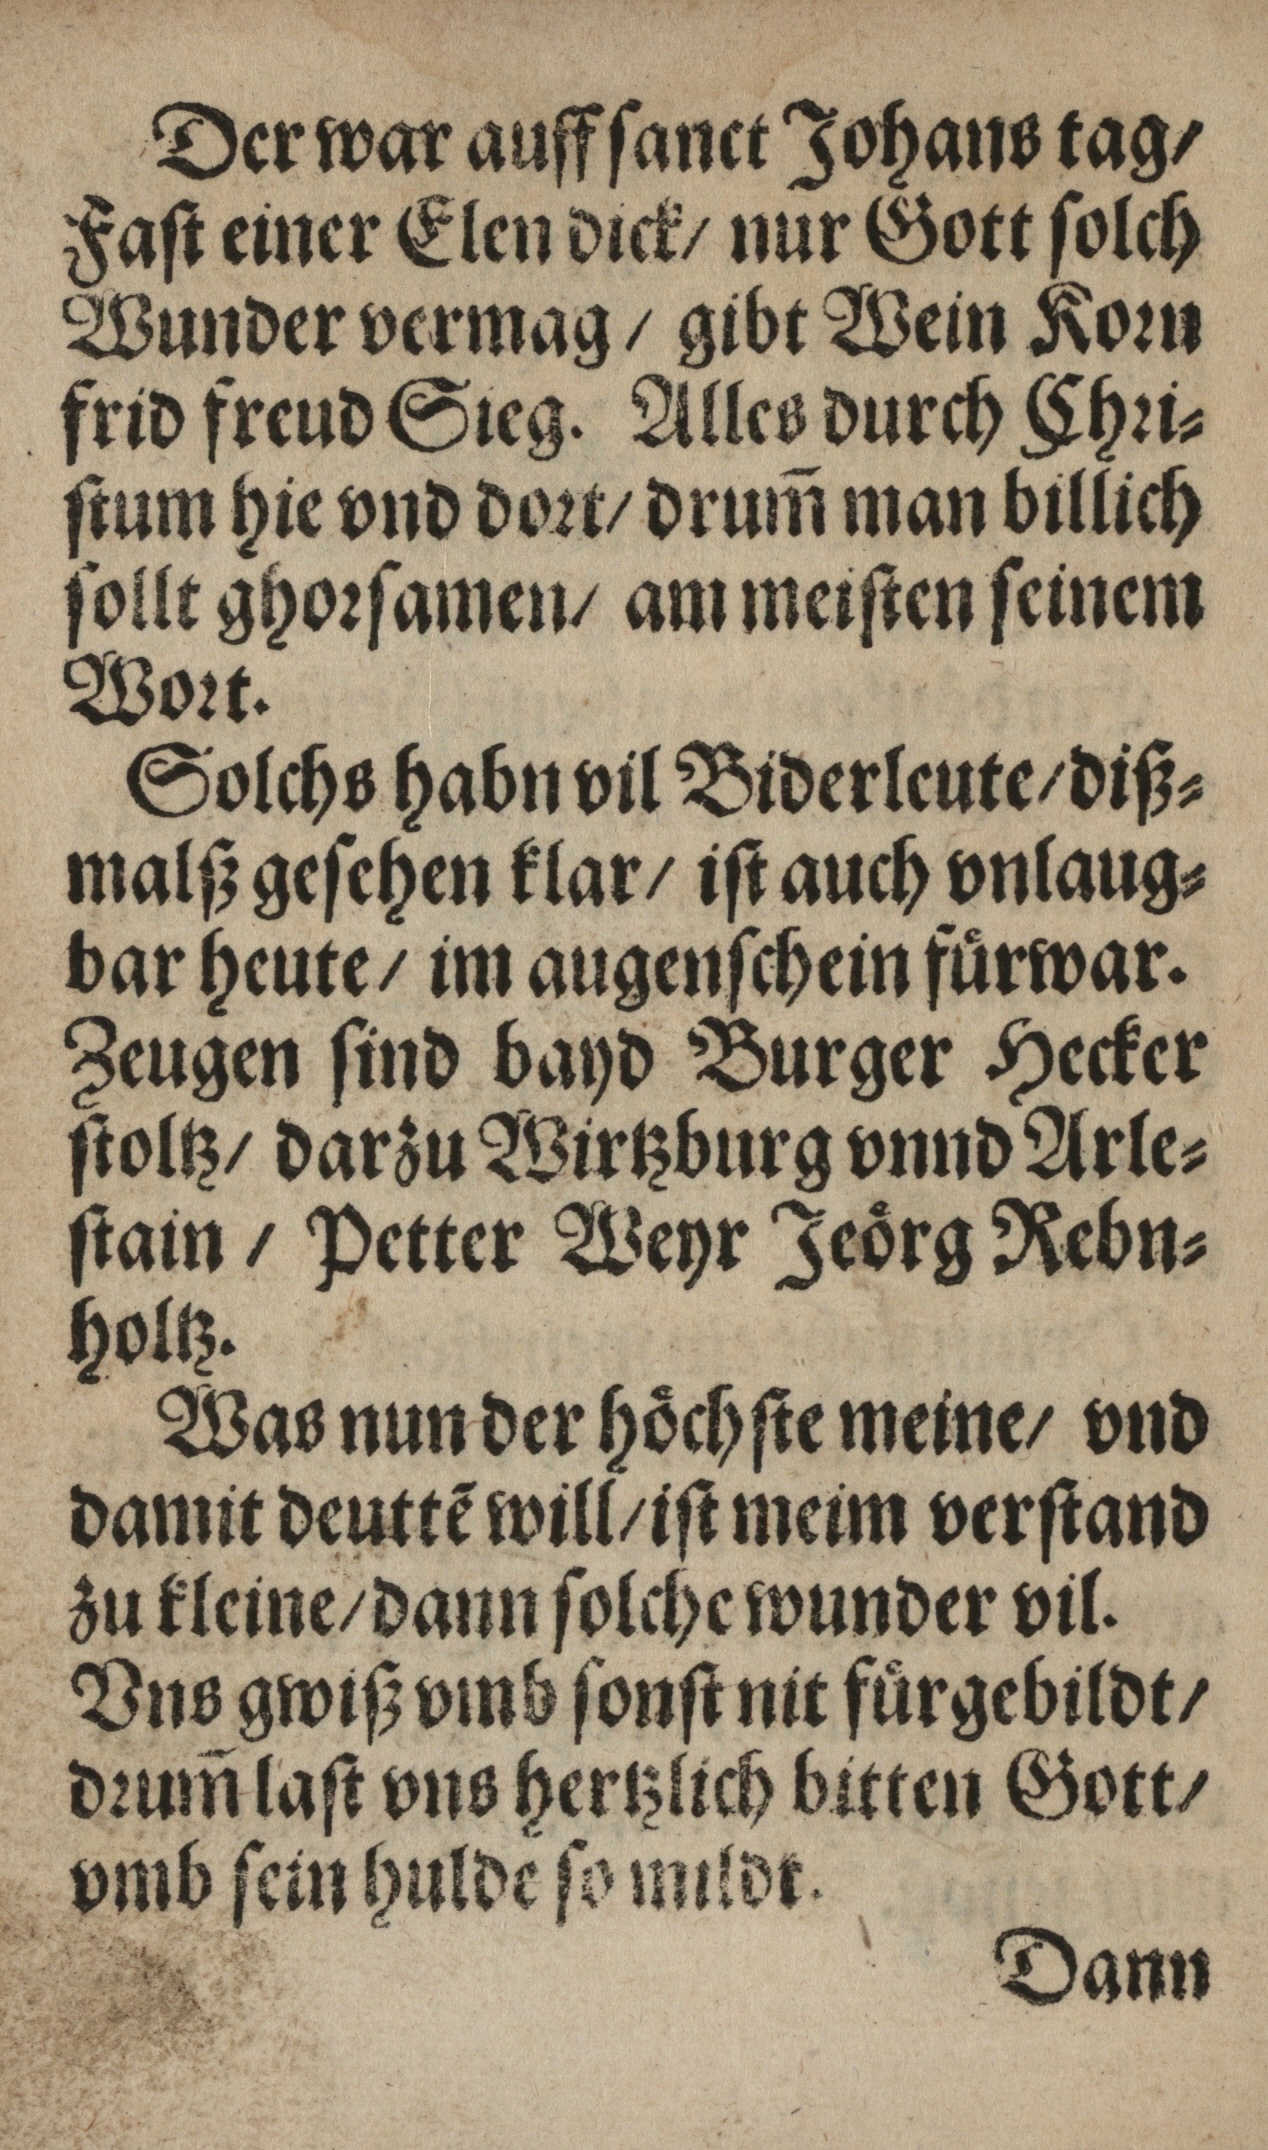 Der war auff sanct Johans tag/
Fast einer Elen dick/ nur Gott solch
Wunder vermag/ gibt Wein Korn
frid freud Sieg. Alles durch Chri⸗
stum hie vnd dort/ drum̄ man billich
sollt ghorsamen/ am meisten seinem
Wort.
Solchs habn vil Biderleute/ diß⸗
malß gesehen klar/ ist auch vnlaug⸗
bar heute/ im augenschein fuͤrwar.
Zeugen sind bayd Burger Hecker
stoltz/ darzu Wirtzburg vnnd Arle⸗
stain / Petter Weyr Jeoͤrg Rebn⸗
holtz.
Was nun der hoͤchste meine/ vnd
damit deuttē will/ ist meim verstand
zu kleine/ dann solche wunder vil.
Vns gwiß vmb sonst nit fuͤrgebildt/
drum̄ last vns hertzlich bitten Gott/
vmb sein hulde so mildt.
Dann